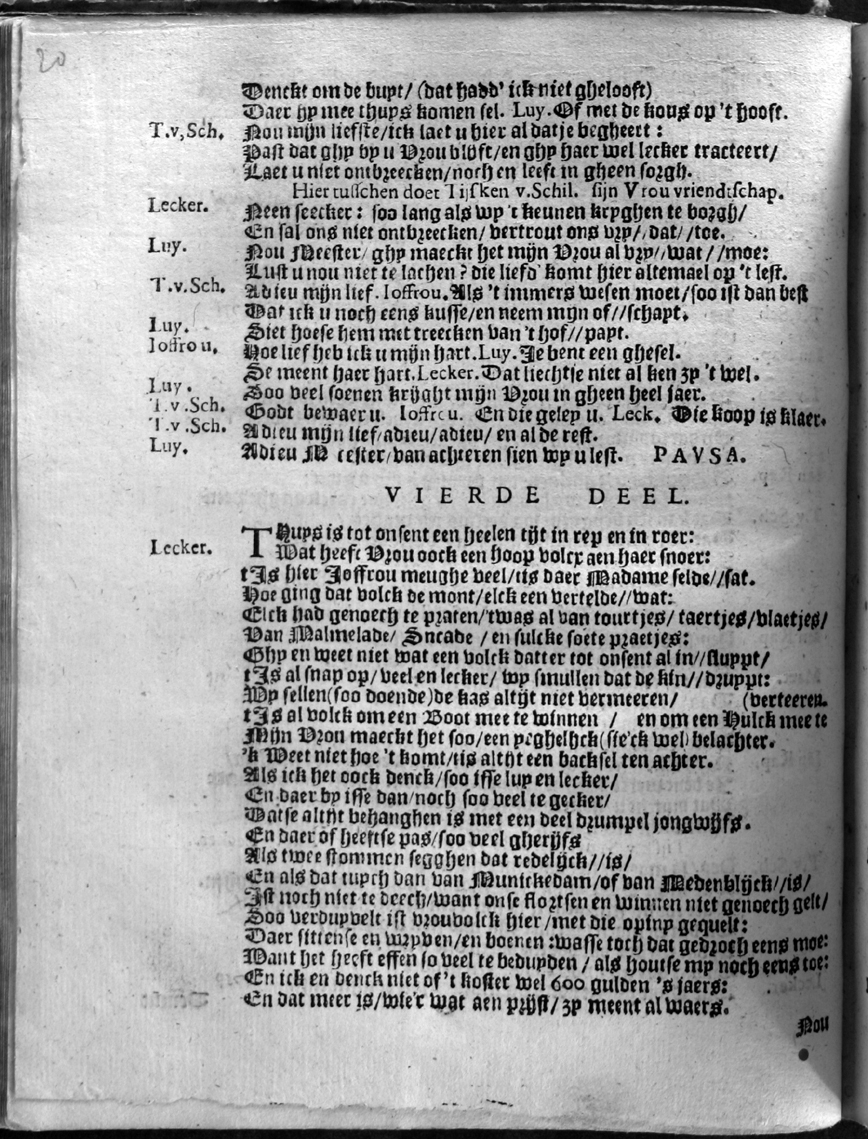 20
Denckt om de buyt/ (dat hadd' ick niet ghelooft)
Daer hy mee thuys komen sel. Luy. Of met de kous op 't hooft.
T.v,Sch. Nou mijn liefste/ick laet u hier al datje begheert :
Past dat ghy by u Vrou blijft/en ghy haer wel lecker tracteert/
Laet u niet ontbreecken/noch en leeft in gheen sorgh.
Hier tusschen doet Tijsken v.Schil. sijn Vrou vriendtschap.
Lecker. Neen seecker: soo lang als wy 't keunen kryghen te borgh/
En sal ons niet ontbreecken/ vertrout ons vry/, dat/ /toe.
Luy. Nou Meester/ ghy maeckt het mijn Vrou al vry//wat/ /moe:
Lust u nou niet te lachen? die liefd' komt hier altemael op 't lest.
T.v.Sch. Adieu mijn lief. Ioffrou. Als 't immers wesen moet/soo ist dan best
Dat ick u noch eens kusse/en neem mijn of//schapt.
Luy. Siet hoese hem met treecken van 't hof//papt.
Ioffrou. Hoe lief heb ick u mijn hart. Luy. Je bent een ghesel.
Se meent haer hart. Lecker. Dat liechtse niet al ken zy 't wel.
Luy. Soo veel soenen krijght mijn Vrou in gheen heel jaer.
T.v.Sch. Godt bewaer u. Ioffrou. En die geley u. Leck. Die koop is klaer.
T.v.Sch. Adieu mijn lief/adieu/adieu/ en al de rest.
Luy. Adieu Meester/van achteren sien wy u lest. PAVSA.
VIERDE DEEL.
Lecker. THuys is tot onsent een heelen tijt in rep en in roer:
Wat heeft Vrou oock een hoop volcx aen haer snoer:
t'Is hier Joffrou meughe veel/tis daer Madame selde//sat.
Hoe ging dat volck de mont/elck een vertelde//wat:
Elck had genoech te praten/'twas al van tourtjes/ taertjes/vlaetjes/
Van Malmelade/ Sucade / en sulcke soete praetjes:
Ghy en weet niet wat een volck datter tot onsent al in//sluypt/
t'Is al snap op/ veel en lecker/ wy smullen dat de kin//druypt:
Wy sellen(soo doende)de kas altijt niet vermeeren/ (verteeren.
t'Is al volck om een Boot mee te winnen / en om een Hulck mee te
Mijn Vrou maeckt het soo/een yeghelijck(sie'ck wel)belachter.
'k Weet niet hoe 't komt/tis altijt een backsel ten achter.
Als ick het oock denck/soo isse luy en lecker/
En daer by isse dan/noch soo veel te gecker/
Datse altijt behanghen is met een deel drumpel jongwijfs.
En daer of heeftse pas/soo veel gherijfs
Als twee stommen segghen dat redelijck//is/
En als dat tuych dan van Munickedam/of van Medenblijck//is/
Ist noch niet te deech/want onse flortsen en winnen niet genoech gelt/
Soo verduyvelt ist vrouvolck hier/met die opinp gequelt:
Daer sittense en wryven/en boenen :wasse toch dat gedroch eens moe:
Want het heeft effen so veel te beduyden / als houtse my noch eens toe:
En ick en denck niet of 't koster wel 600 gulden 's jaers:
En dat meer is/wie'r wat aen prijst/ zy meent al waers.
Nou